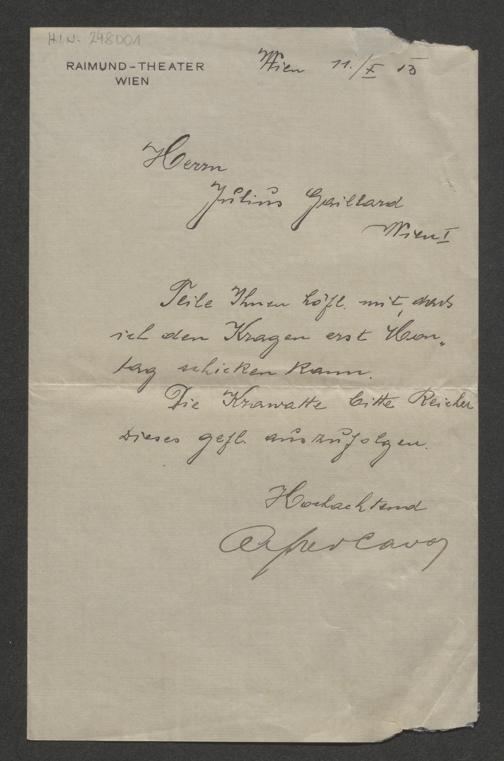 H.I.N. 248001
RAIMUND-THEATER
WIEN
Wien 11./X 13
Herrn
Julius Gaillard
Wien I
Teile Ihnen höfl. mit, dass
ich den Kragen erst Mon„
tag schicken kann.
Die Krawatte bitte
dieses gefl. auszufolgen.
Hochachtend